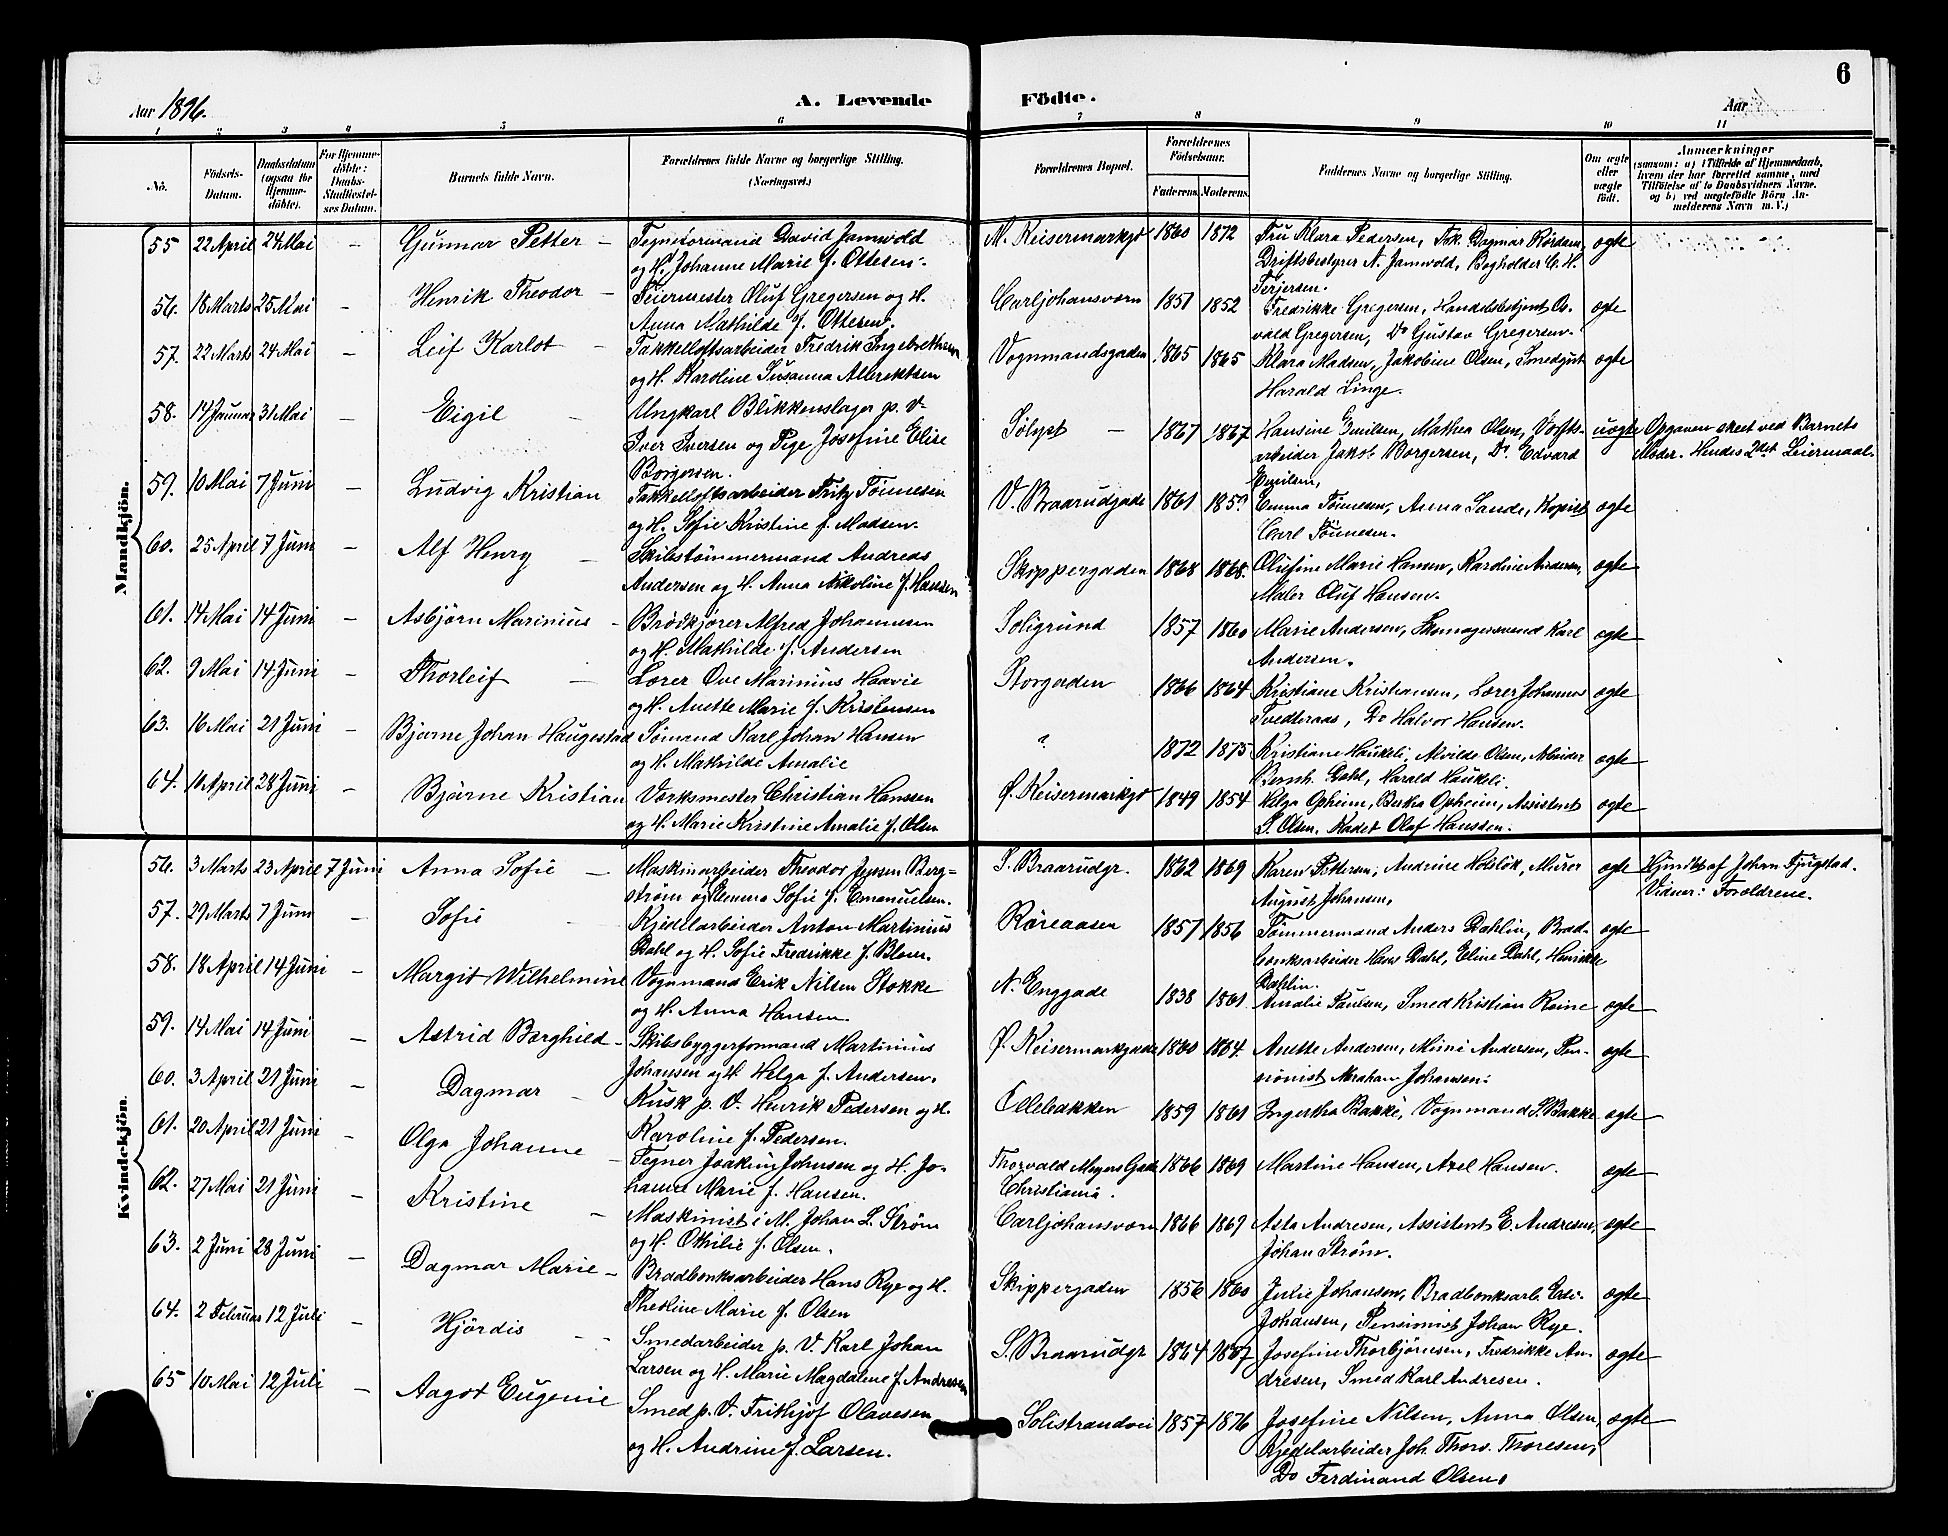 6
Aar 1896.
A. Levende Födte.
Aar
1 2 3 4 5 6 7 8 9 10 11
No.
Födsels-Datum.
Daabsdatum (ogsaa for Hjemme-döbte).
For Hjemme-döbte: Daabs-Stadfæstel-ses Datum.
Barnets fulde Navn.
Forældrenes fulde Navne og borgerlige Stilling. (Næringsvei.)
Forældrenes Bopæl.
Forældrenes Födselsaar.
Faderens. Moderens.
Faddernes Navne og borgerlige Stilling.
Om ægte eller uægte født.
Anmærkninger (saasom: a) i Tilfælde af Hjemmedaab, hvem der har forrettet samme, med Tilføielse af to Daabsvidners Navne, og b) ved uægtefödte Börn An-melderens Navn m. V.)
Mandkjön.
55 22 April 24 Mai – Gunnar Petter – Tegneformand David Jamvold
og H. Johanne Marie f. Ottesen.
N. Keisermarkgd 1860 1872 Fru Klara Pedersen, Frk. Dagmar Rørdam,
Driftsbestyrer N. Jamvold, Bogholder C. H.
Terjersen. ægte
56. 18 Marts 25 Mai – Henrik Theodor – Feiermester Oluf Gregersen og H.
Anna Mathilde f. Ottesen.
Carljohansværn 1851 1852 Fredrikke Gregersen, Handelsbetjent Os-
vald Gregersen, Do Gustav Gregersen. ægte
57. 22 Marts 24 Mai – Leif Karlot – Takkelloftsarbeider Fredrik Ingebrethsen
og H. Karoline Susanna Albrektsen
Vognmandsgaden 1865 1865 Klara Madsen, Jakobine Olsen, Smedgut
Harald Linge. ægte
58. 14 Januar 31 Mai – Eigil – Ungkarl Blikkenslager p. V.
Iver Iversen og Pige Josefine Elise
Borgersen.
Sølyst – 1867 1867 Hansine Emilsen, Mathea Olsen, Værfts-
arbeider Jakob Borgersen, Do. Edvard
Emilsen, uægte Opgaven skeet ved Barnets
Moder. Hendes 2det Leiermaal.
59. 10 Mai 7 Juni – Ludvig Kristian Takkelloftsarbeider Fritz Tønnesen
og H. Sofie Kristine f. Madsen.
V. Braarudgade 1861 185? Emma Tønnesen, Anna Sande, Kopist
Carl Tønnesen. ægte
60. 25 April 7 Juni – Alf Henry – Skibstømmermand Andreas
Andersen og H. Anna Nikoline f. Hansen
Skippergaden 1868 1868. Olufine Marie Hansen, Karoline Andersen,
Maler Oluf Hansen. ægte
61. 14 Mai 14 Juni Asbjørn Marinius – Brødkjører Alfred Johannesen
og H. Mathilde f. Andersen
Soligrund 1857 1860 Marie Andersen, Skomagersvend Karl
Andersen. ægte
62. 9 Mai 14 Juni Thorleif – Lærer Ove Marinius Haavie
og H. Anette Marie f. Kristensen
Storgaden 1866 1864 Kristiane Kristiansen, Lærer Johannes
Tvedteraas, Do Halvor Hansen. ægte
63. 16 Mai 21 Juni Bjarne Johan Haugestad Sømand Karl Johan Hansen
og H. Mathilde Amalie
? 1872 1875 Kristiane Haukeli, Alvilde Olsen, Arbeider
Bernh. Dahl, Harald Haukeli. ægte
64. 10 April 28 Juni Bjarne Kristian Værksmester Christian Hanssen
og H. Marie Kristine Amalie f. Olsen
Ø. Keisermarkgd 1849 1854 Helga Opheim, Betha Opheim, Assistent
S. Olsen, Kadet Olaf Hanssen. ægte
Kvindekjön.
56. 3 Marts 23 April 7 Juni Anna Sofie – Maskinarbeider Theodor Jensen Berg-
strøm og Hemma Sofie f. Emanuelsen.
S. Braarudgr. 1862 1869 Karen Pettersen, Andrine Holsbök, Murer
August Johansen, ægte Hjmdbt af Johan Fjugstad.
Vidner: Forældrene.
57. 29 Marts 7 Juni – Sofie – Kjedelarbeider Anton Martinius
Dahl og H. Sofie Fredrikke f. Blom.
Røreaasen 1857 1856 Tømmermand Anders Dahlin, Brad-
bænksarbeider Hans Dahl, Eline Dahl, Henrikke
Dahlin. ægte
58. 18 April 14 Juni – Margit Wilhelmine Vognmand Erik Nilsen Stokke
og H. Anna Hansen.
N. Enggade 1838 1861 Amalie Paulsen, Smed Kristian Roine ægte
59. 14 Mai 14 Juni – Astrid Borghild – Skibsbyggerformand Martinius
Johansen og H. Helga f. Andersen.
Ø. Keisermarkgade 1860 1864. Anette Andersen, Mimi Andersen, Pen-
sionist Abraham Johansen. ægte
60. 3 April 21 Juni – Dagmar – Kusk p. V. Henrik Pedersen og H.
Karoline f. Pedersen.
Ollebakken 1859 1861 Ingertha Bakke, Vognmand S. Bakke ægte
61. 20 April 21 Juni – Olga Johanne – Tegner Joakim Johnsen og H. Jo-
hanne Marie f. Hansen.
Thorvald Meyers Gade
Christiania. 1866 1869 Martine Hansen, Axel Hansen. ægte
62. 27 Mai 21 Juni – Kristine – Maskinist i M. Johan L. Strøm
og H. Othilie f. Olsen.
Carljohansværn 1866 1869 Asta Andresen, Assistent E. Andresen,
Johan Strøm. ægte
63. 2 Juni 28 Juni – Dagmar Marie – Bradbænksarbeider Hans Rye og H.
Theoline Marie f. Olsen
Skippergaden 1856 1860 Julie Johansen, Bradbænksarb. Edv.
Johansen, Pensionist Johan Rye. ægte
64. 2 Februar 12 Juli – Hjørdis – Smedarbeider p. V. Karl Johan
Larsen og H. Marie Magdalene f. Andresen
S. Braarudgr 1864 1867 Josefine Thorbjørnsen, Fredrikke An-
dresen, Smed Karl Andresen. ægte
65 10 Mai 12 Juli – Aagot Eugenie Smed p. V. Frithjof Olavesen
og H. Andrine f. Larsen.
Solistrandvei 1857 1876 Josefine Nilsen, Anna Olsen,
Kjedelarbeider Joh. Thorv. Thoresen,
Do Ferdinand Olsen. ægte